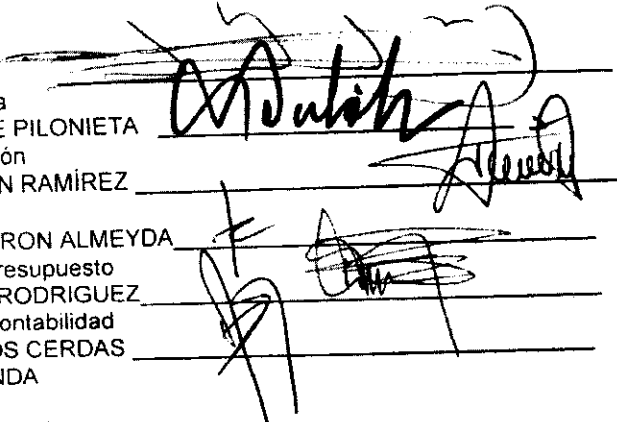 a
E PILONIETA
ón
N RAMÍREZ
RON ALMEYDA
resupuesto
RODRIGUEZ
ontabilidad
OS CERDAS
NDA